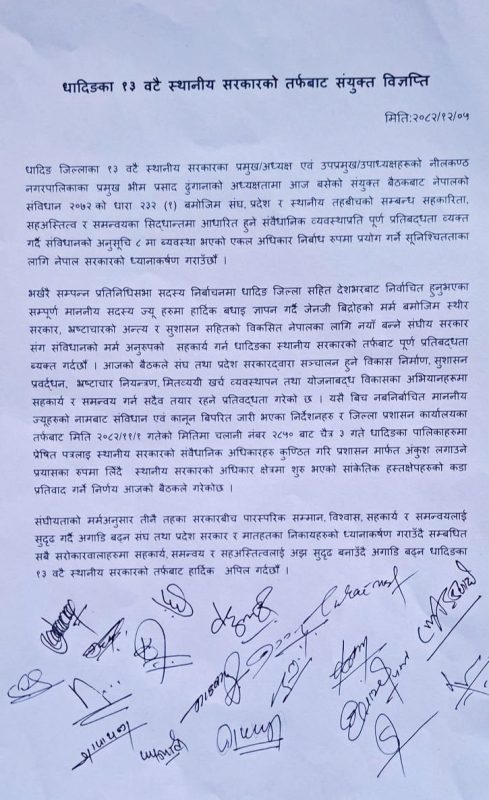 धादिङका १३ वटै स्थानीय सरकारको तर्फबाट संयुक्त विज्ञप्ति
मिति:२०८२/१२/०५
धादिङ जिल्लाका १३ वटै स्थानीय सरकारका प्रमुख/अध्यक्ष एवं उपप्रमुख/उपाध्यक्षहरूको नीलकण्ठ
नगरपालिकाका प्रमुख भीम प्रसाद ढुंगानाको अध्यक्षतामा आज बसेको संयुक्त बैठकबाट नेपालको
संविधान २०७२ को धारा २३२ (१) बमोजिम संघ,प्रदेश र स्थानीय तहबीचको सम्बन्ध सहकारिता,
सहअस्तित्व र समन्वयका सिद्धान्तमा आधारित हुने संवैधानिक व्यवस्थाप्रति पूर्ण प्रतिबद्धता व्यक्त
गर्दै संविधानको अनुसूचि ८ मा ब्यवस्था भएको एकल अधिकार निर्बाध रुपमा प्रयोग गर्ने सुनिश्चितताका
लागि नेपाल सरकारको ध्यानाकर्षण गराउँछौं ।
भर्खरै सम्पन्न प्रतिनिधिसभा सदस्य निर्बाचनमा धादिङ जिल्ला सहित देशभरबाट निर्वाचित हुनुभएका
सम्पूर्ण माननीय सदस्य ज्यू हरुमा हार्दिक बधाइ ज्ञापन गर्दै जेनजी बिद्रोहको मर्म बमोजिम स्थीर
सरकार, भ्रष्टाचारको अन्त्य र सुशासन सहितको विकसित नेपालका लागि नयाँ बन्ने संघीय सरकार
संग संविधानको मर्म अनुरुपको सहकार्य गर्न धादिङका स्थानीय सरकारको तर्फबाट पूर्ण प्रतिबद्धता
ब्यक्त गर्दछौं । आजको बैठकले संघ तथा प्रदेश सरकारद्वारा सञ्चालन हुने विकास निर्माण, सुशासन
प्रवर्द्धन, भ्रष्टाचार नियन्त्रण, मितव्ययी खर्च व्यवस्थापन तथा योजनाबद्ध विकासका अभियानहरूमा
सहकार्य र समन्वय गर्न सदैव तयार रहने प्रतिवद्धता गरेको छ । यसै बिच नबनिर्बाचित माननीय
ज्यूहरुको नामबाट संविधान एवं कानून बिपरित जारी भएका निर्देशनहरु र जिल्ला प्रशासन कार्यालयका
तर्फबाट मिति २०८२/११/१ गतेको मितिमा चलानी नंबर २८५० बाट चैत्र ३ गते धादिङका पालिकाहरुमा
प्रेषित पत्रलाइ स्थानीय सरकारको संवैधानिक अधिकारहरु कुण्ठित गरि प्रशासन मार्फत अंकुश लगाउने
प्रयासका रुपमा लिँदै स्थानीय सरकारको अधिकार क्षेत्रमा शुरु भएको सांकेतिक हस्तक्षेपहरुको कडा
प्रतिवाद गर्ने निर्णय आजको बैठकले गरेकोछ ।
संघीयताको मर्मअनुसार तीनै तहका सरकारबीच पारस्परिक सम्मान, विश्वास, सहकार्य र समन्वयलाई
सुदृढ गर्दै अगाडि बढ्न संघ तथा प्रदेश सरकार र मातहतका निकायहरुको ध्यानाकर्षण गराउँदै सम्बन्धित
सबै सरोकारवालाहरूमा सहकार्य, समन्वय र सहअस्तित्वलाई अझ सुदृढ बनाउँदै अगाडि बढ्न धादिङका
१३ वटै स्थानीय सरकारको तर्फबाट हार्दिक अपिल गर्दछौं ।